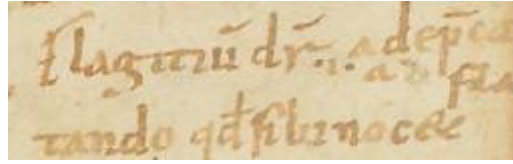 Flagitiū dr̄ adep̄ca
fla
tando qđ sibi noc&